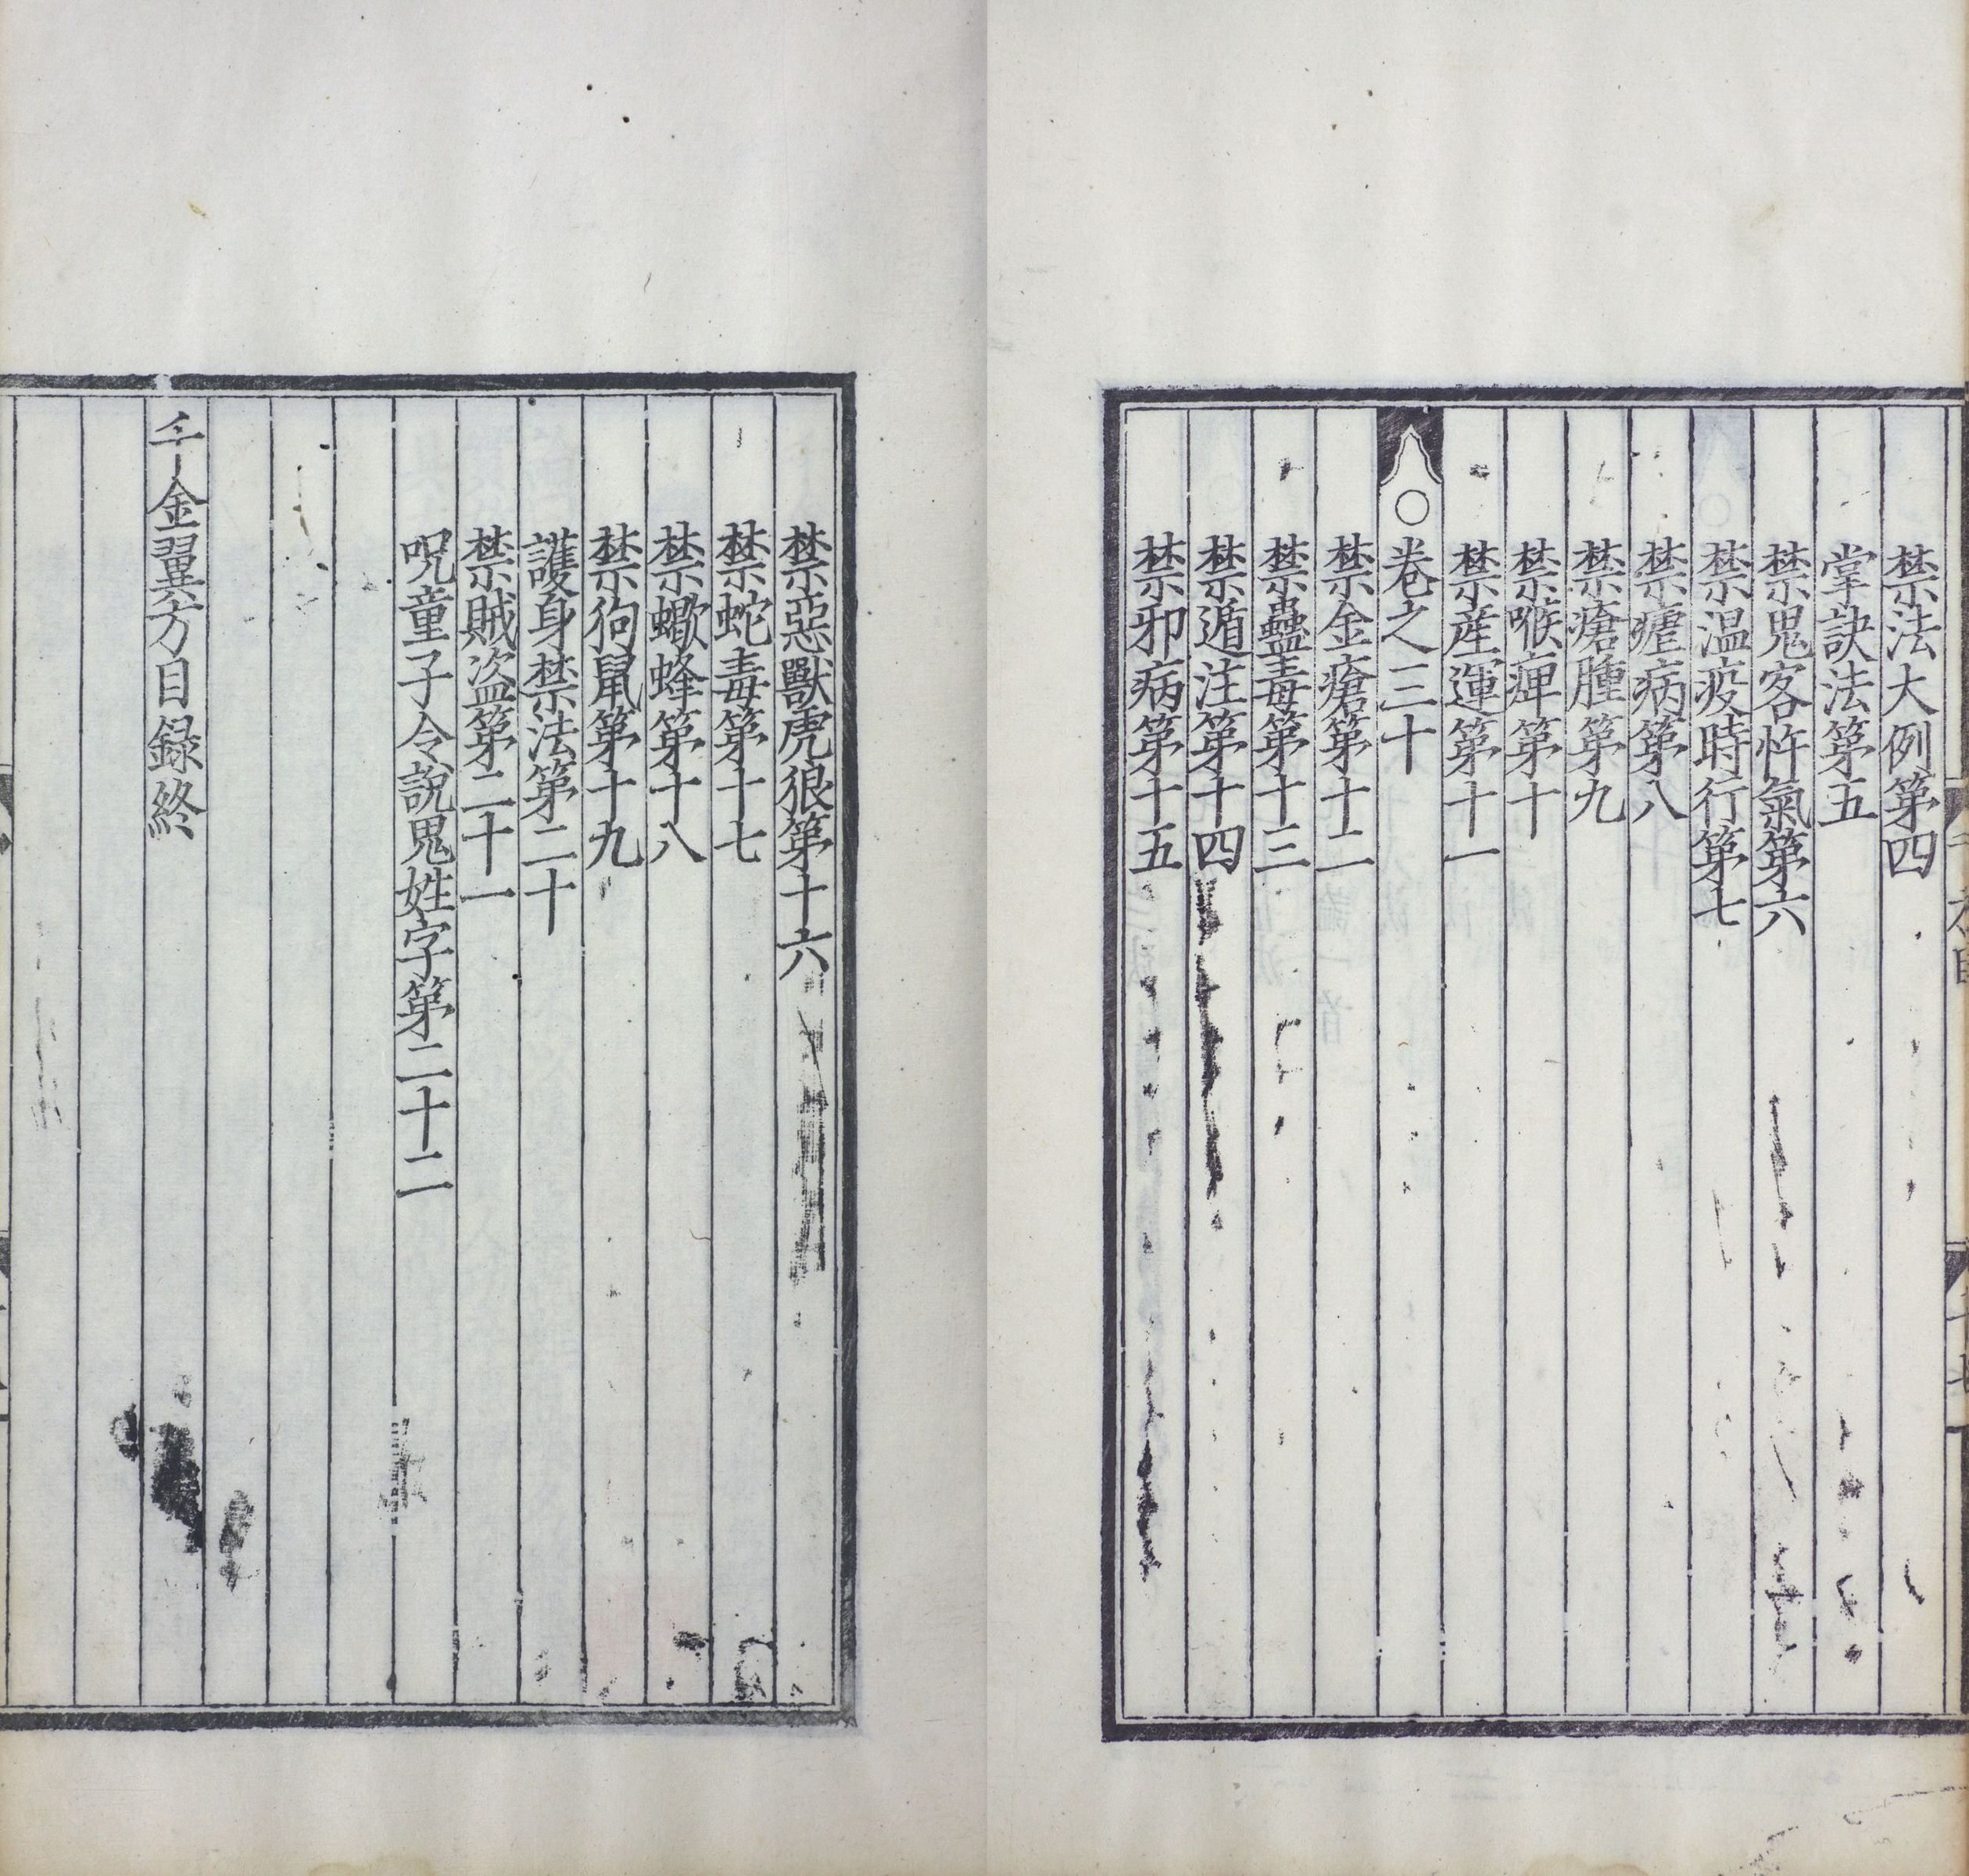 禁法大例第四
掌訣法第五
禁鬼客忤氣第六
禁溫疫時行第七
禁瘧病第八
禁瘡腫第九
禁喉痺第十
禁産運第十一
○卷之三十
禁金瘡第十二
禁蠱毒第十三
禁遁注第十四
禁邪病第十五
禁惡獸虎狼第十六
禁蛇毒第十七
禁蠍蜂第十八
禁狗鼠第十九
護身禁法第二十
禁賊盜第二十一
呪童子令說鬼姓字第二十二
千金翼方目録終